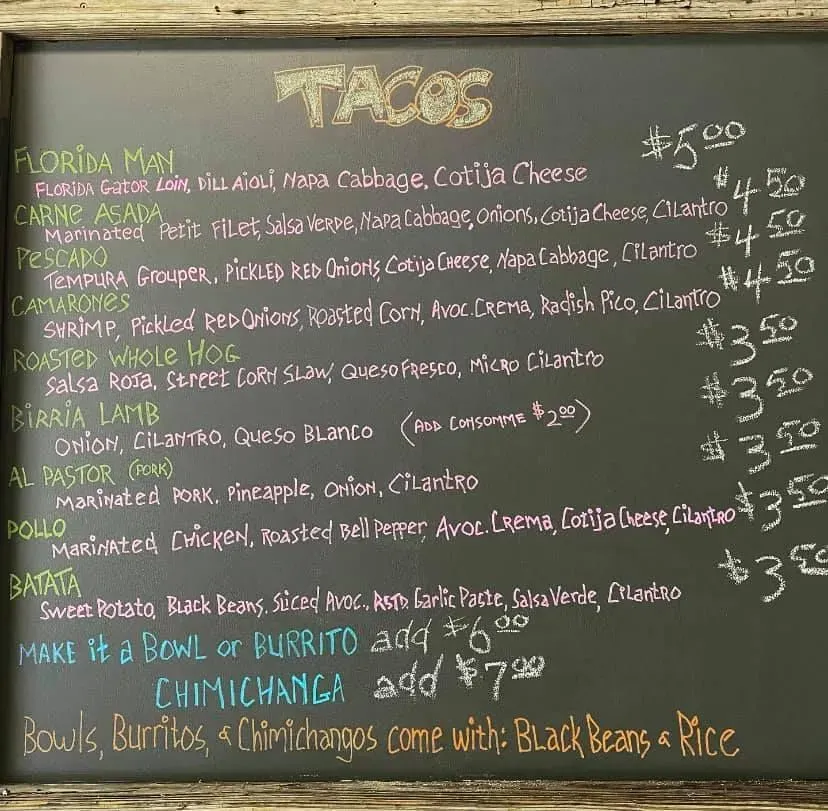 TACOS
FLORIDA MAN $5.00
FLORIDA GATOR LOIN, DILL AIOLI, NAPA CABBAGE, COTIJA CHEESE
CARNE ASADA $4.50
MARINATED PETIT FILET, SALSA VERDE, NAPA CABBAGE, ONIONS, COTIJA CHEESE, CILANTRO
PESCADO $4.50
TEMPURA GROUPER, PICKLED RED ONIONS, COTIJA CHEESE, NAPA CABBAGE, CILANTRO
CAMARONES $4.50
SHRIMP, PICKLED RED ONIONS, ROASTED CORN, AVOC. CREMA, RADISH PICO, CILANTRO
ROASTED WHOLE HOG $3.50
SALSA ROJA, STREET CORN SLAW, QUESO FRESCO, MICRO CILANTRO
BIRRIA LAMB $3.50
ONION, CILANTRO, QUESO BLANCO (ADD CONSOMME $2.00)
AL PASTOR (PORK) $3.50
MARINATED PORK, PINEAPPLE, ONION, CILANTRO
POLLO $3.50
MARINATED CHICKEN, ROASTED BELL PEPPER, AVOC. CREMA, COTIJA CHEESE, CILANTRO
BATATA $3.50
SWEET POTATO, BLACK BEANS, SLICED AVOC., RSTD. GARLIC PASTE, SALSA VERDE, CILANTRO
MAKE it a BOWL or BURRITO add $6.00
CHIMICHANGA add $7.00
Bowls, Burritos, & Chimichangos come with: BLACK BEANS & RICE